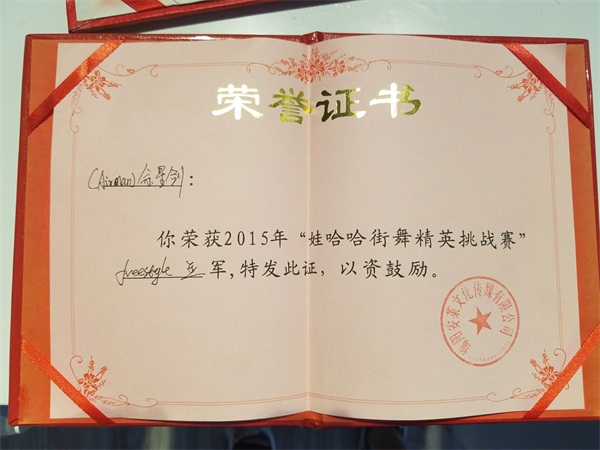 荣誉证书
(Airman)余星剑：
你荣获2015年“娃哈哈街舞精英挑战赛”
freestyle 亚 军，特发此证，以资鼓励。
安莱文化传媒有限公司